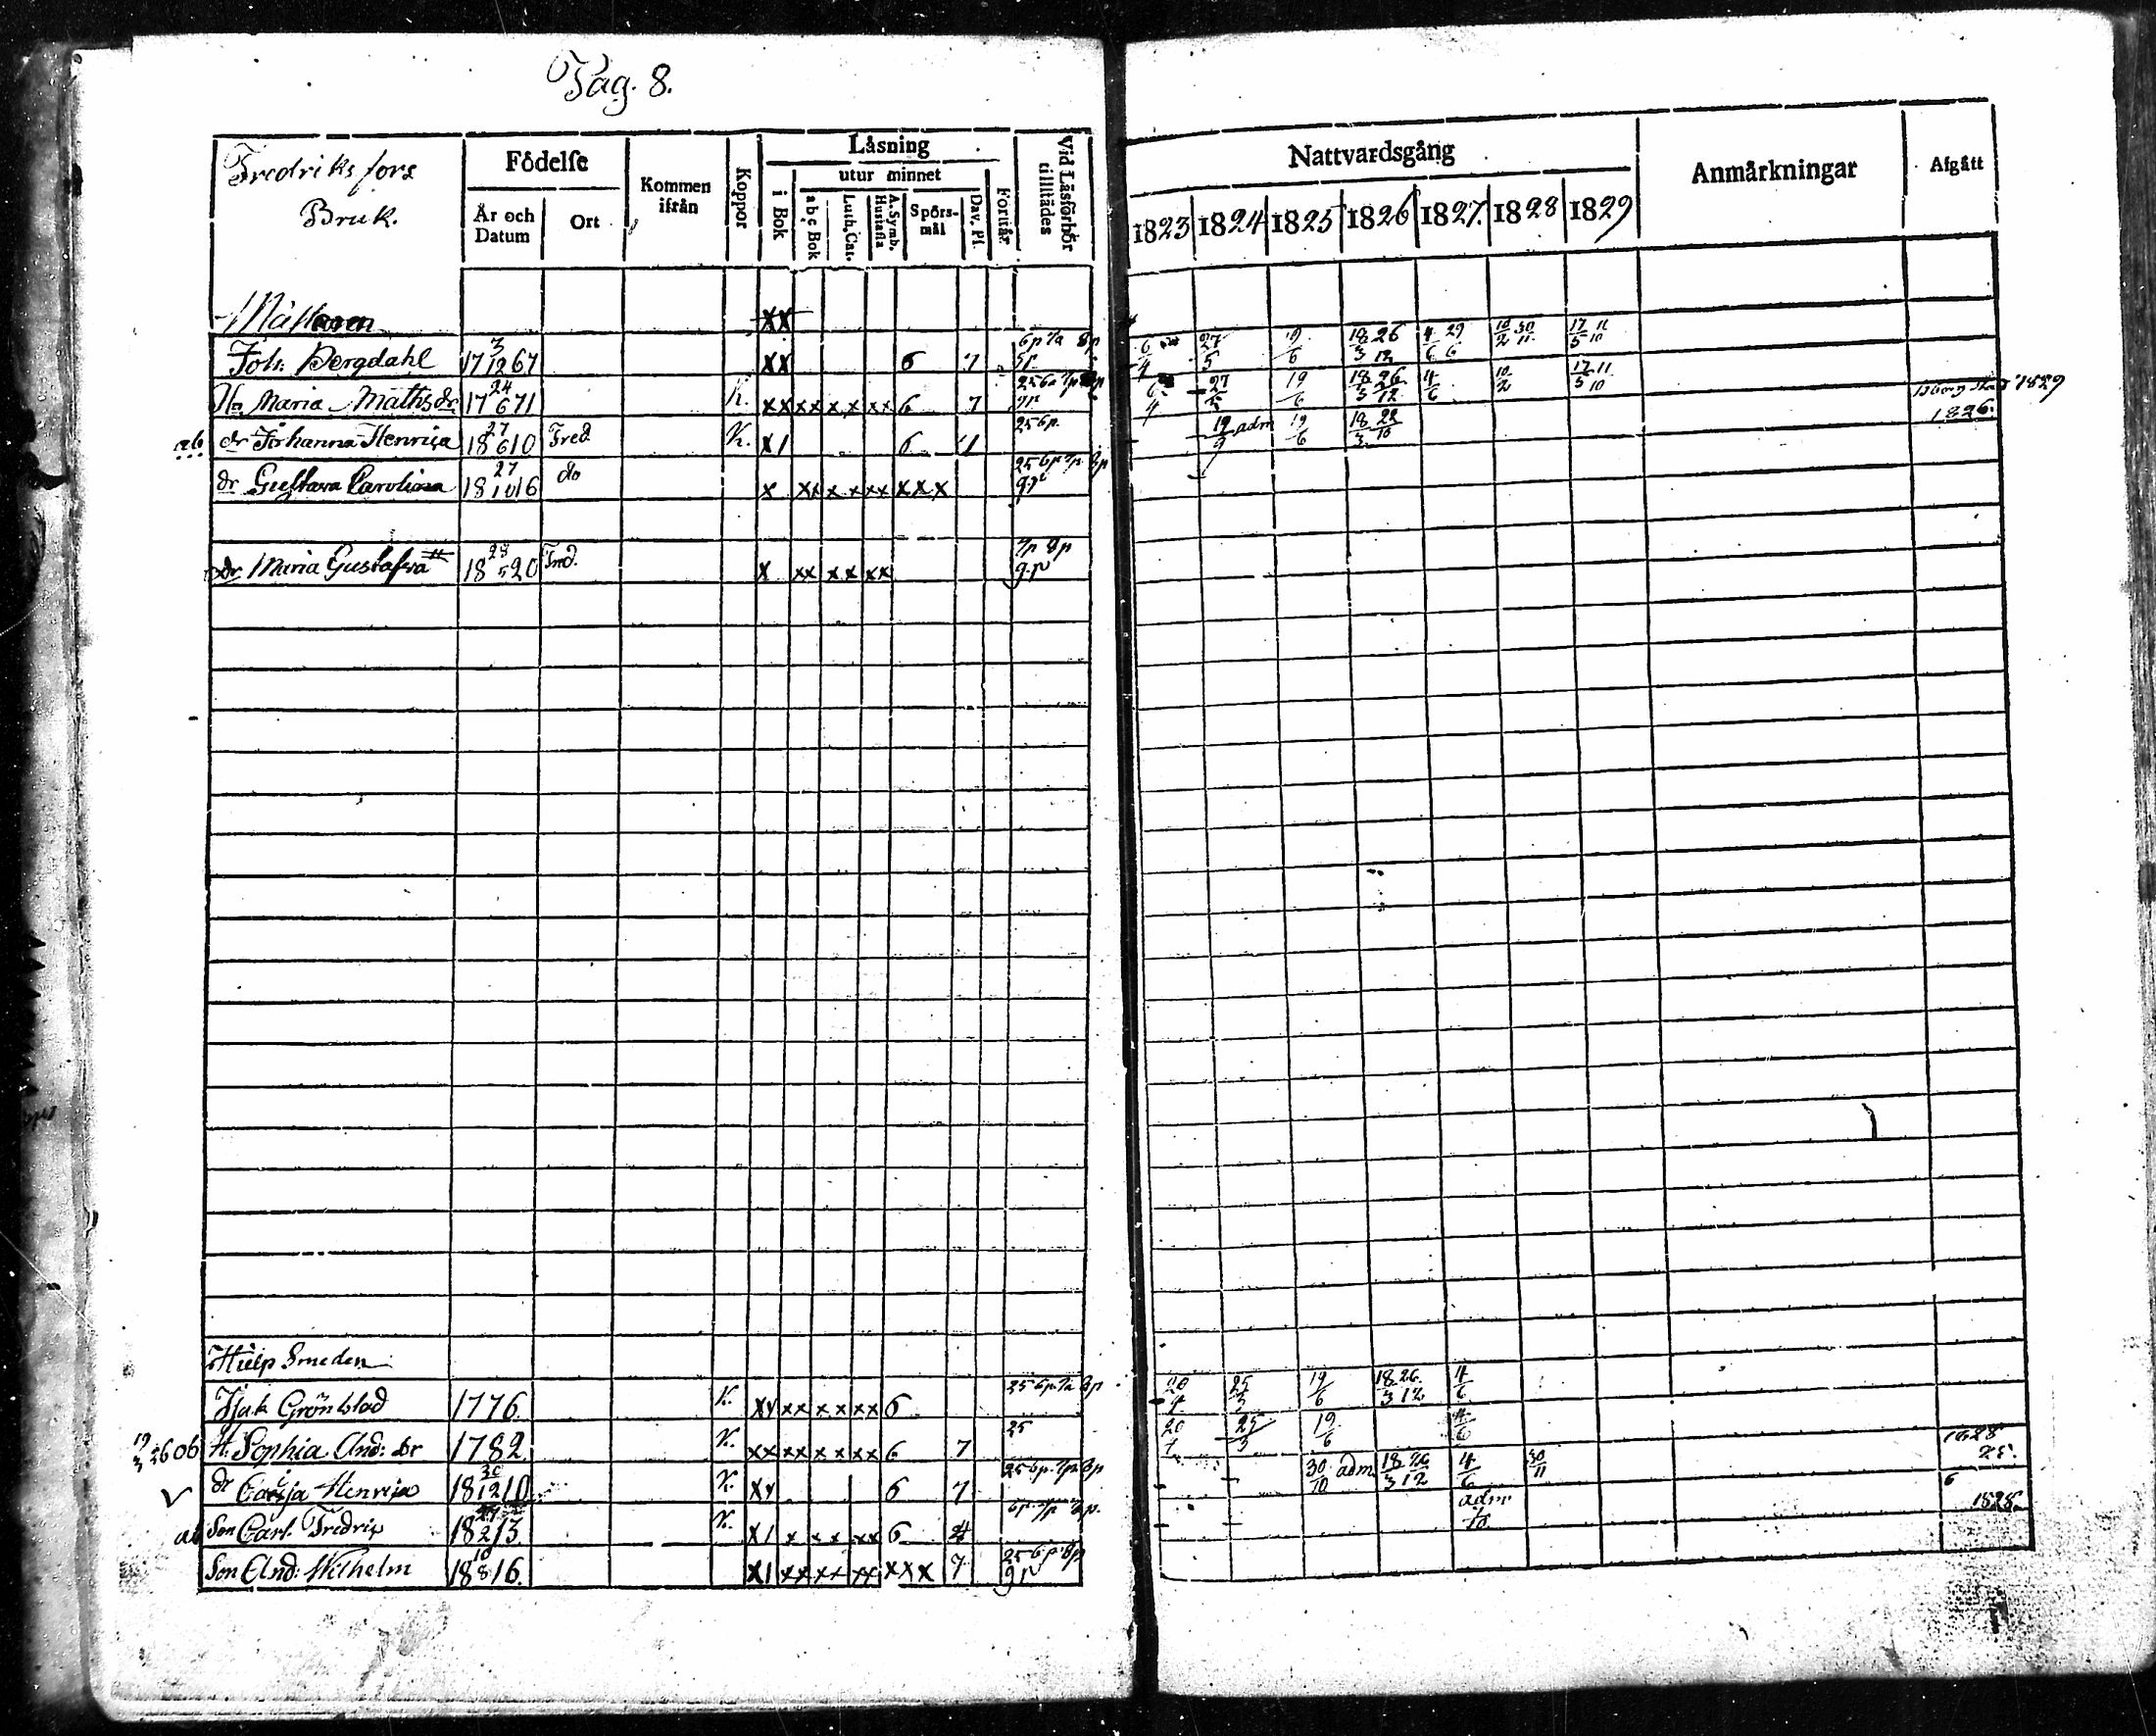 Pag. 8.
Fredriksfors Bruk.
Födelse
Är och Datum
Ort
Kommen ifrån
Koppor
Låsning
i Bok
utur minnet
abc Bok
Luth. Cat.
A. Symb. Hustafla
Spörsmål
Dav. Ps.
Förstår
Vid Läsförhör tillstädes
Nattvardsgång
1823 1824 1825 1826 1827. 1828 1829
Anmärkningar
Afgått
XX
Joh. Bergdahl 17 3/12 67 XX 6 7 6/4 27/5 19/6 18/3 26/12 4/6 29/6 10/2 30/11 17/5 11/10
Hu Maria Mathsdr 17 24/6 71 K. XX XX XX XX 6 7 6/4 27/5 19/6 18/3 26/12 4/6 10/2 17/5 11/10 1829
ab dr Johanna Henrica 18 27/6 10 Fred K. X1 6 7 256p. 19/9 adm 19/6 18/3 22/10 1826.
dr Gustava Carolina 18 27/10 16 do X XX XX XX XXX 256p 7p 8p 9p
dr Maria Gustafva 18 28/5 20 Fred. X XX XX XX 7p 8p 9p
Hielp Smeden
Isak Grönblad 1776. K. XX XX XX XX 6 256p 7a 8p 20/4 25/3 19/6 18/3 26/12 4/6
19/3 26 ob H. Sophia And: dr 1782. K. XX XX XX XX 6 7 25 20/4 25/3 19/6 4/6
dr Caisa Henrica 18 30/12 10 K. XX 6 7 256p. 7p. 8p 30/10 adm 18/3 26/12 4/6 30/11 1828
ab Son Carl Fredric 18 2 13. K. X1 X XX XX 6 4 6p 7p 8p. adm 1828.
Son And: Wilhelm 18 10/8 16. X1 XX XX XX XXX 7 256p 8p 9p